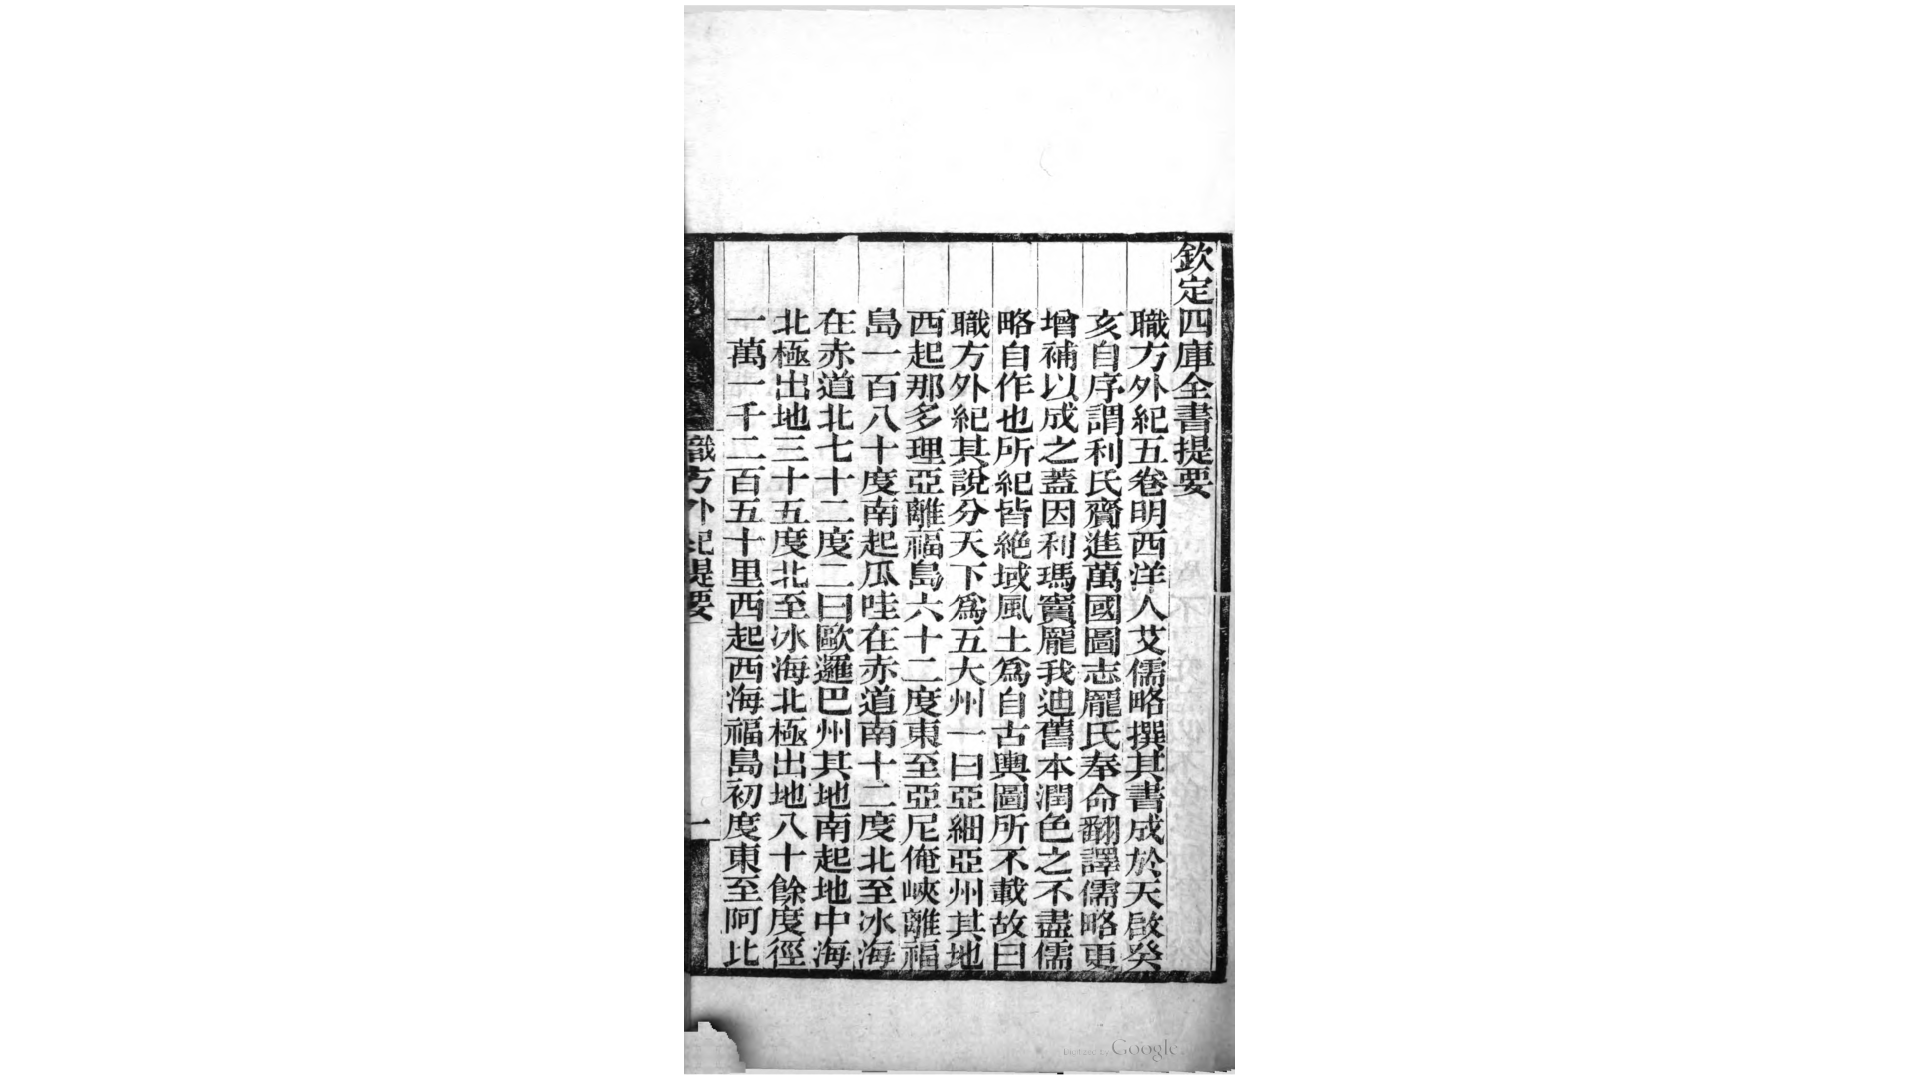 欽定四庫全書提要
職方外紀五卷明西洋人艾儒略撰其書成於天啟癸
亥自序謂利氏齎進萬國圖志龐氏奉命翻譯儒略更
增補以成之蓋因利瑪竇龐我迪舊本潤色之不盡儒
略自作也所紀皆絶域風土爲自古輿圖所不載故曰
職方外紀其說分天下爲五大州一曰亞細亞州其地
西起那多理亞離福島六十二度東至亞尼俺峽離福
島一百八十度南起瓜哇在赤道南十二度北至冰海
在赤道北七十二度二曰歐邏巴州其地南起地中海
北極出地三十五度北至冰海北極出地八十餘度徑
一萬一千二百五十里西起西海福島初度東至阿比
職方外紀提要
一
Google